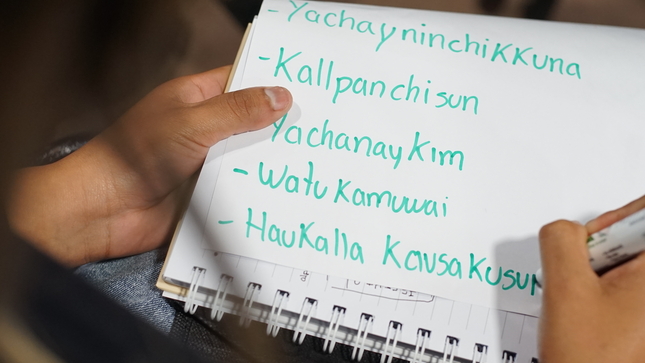 - YachayninchiKKuna
- Kallpanchisun
Yachanaykim
- Watu Kamuwai
- HauKalla KausaKusun